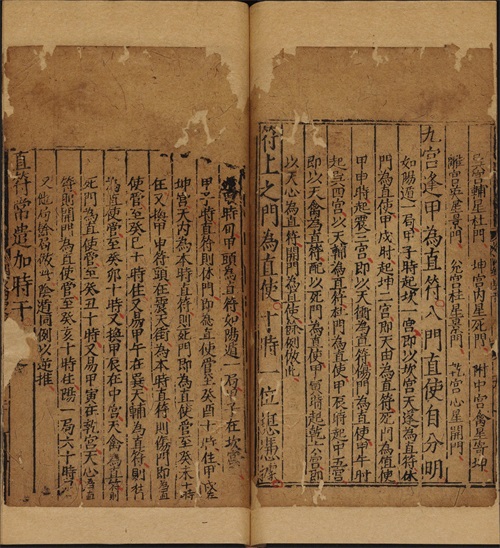 宮輔星杜門　坤宮內星死門　附中宮禽星皆坤
離宮英星景門　兌宮柱星景門　宮心星開門
九宮逢甲為直符八門直使自分明
如陽遁一局甲子時起坎一宮即以坎宮天蓬為直符休
門為直使甲戌時起坤二宮即天內為直符死門為值使
甲申時起震三宮即以天衝為直符傷門為直使甲午時
起巽四宮以天輔為直符杜門為直使甲辰時起中五宮
即以天禽為直符配以死門為直使甲寅時起乾六宮即
以天心為直符開門為直使餘倣此
符上之門為直使十時一位堪憑據
時旬甲頭為直符如陽遁一局甲子在坎宮
甲子時直符則休門即為直使管至癸酉十時住甲戌在
坤宮天內為本時直符則死門即為直使管至癸未十時
住又換甲申符頭在震天衝為本時直符則傷門即為
直使管至癸巳十時住又易甲午在巽天輔為直符則杜
門為直使管至癸卯十時又換甲辰在中宮天禽為直符則
死門為直使管至癸丑十時又易甲寅在乾宮天心為直
符則開門為直使管至癸亥十時住陽一局六十時
又他局餘局倣此陰遁同例以逆推
直符常遣加時干